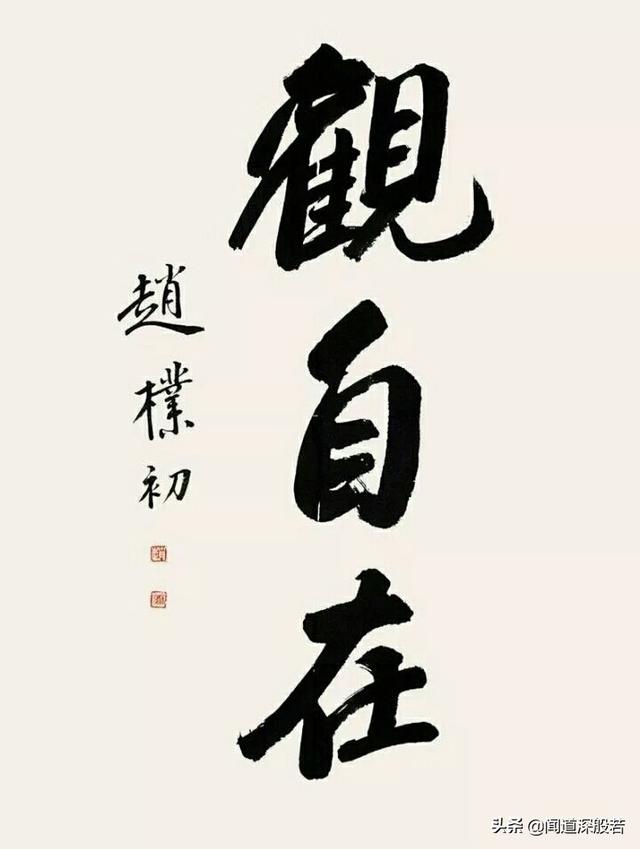 觀自在
趙樸初
头条 @闻道深般若